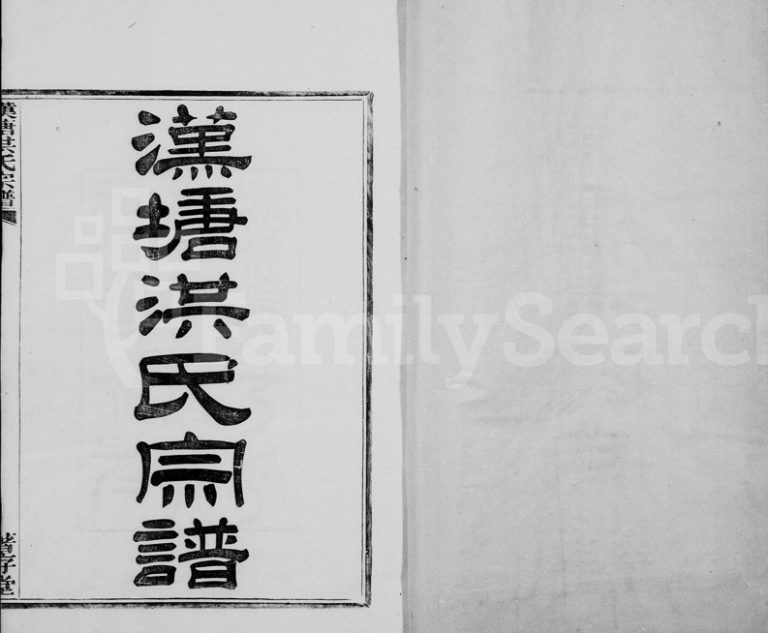 漢塘洪氏宗譜
漢塘洪氏宗譜
存堂
FamilySearch